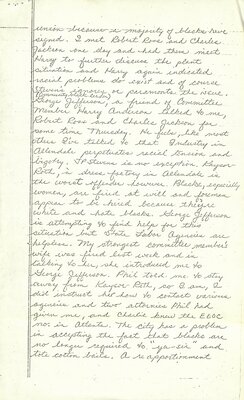 union because a majority of blacks have
signed. I met Robert Rose and Charles
Jackson one day and had them meet
Harry to further discuss the plant
situation and Harry again indicated
racial problems do exist and of course
Stevens rumors, or paramounts the issue.
(Community Action Center)
George Jefferson, a friend of Committee
Member Harry Anderson talked to me,
Robert Rose and Charles Jackson for
some time Thursday. He feels, like most
others I've talked to that Industry in
Allendale perpetuates racial tension and
bigotry. J.P. Stevens is no exception. Kayser
Roth, a dress factory in Allendale is
the worst offender however. Blacks, especially
women, are fired at will and foremen
appear to be hired because they're
white and hate blacks. George Jefferson
is attempting to find help for this
situation but State Labor Agencies are
helpless. My strongest committee member's
wife was fired last week and in
talking to her, she introduced me to
George Jefferson. Phil told me to stay
away from Kayser Roth, so I am, I
did instruct her how to contact various
agencies and two attornies Phil had
given me, and Charlie knew the EEOC
no. in Atlanta. The city has a problem
in accepting the fact that blacks are
no longer required to "ya-sir" and
tote cotton bales. A reapportionment